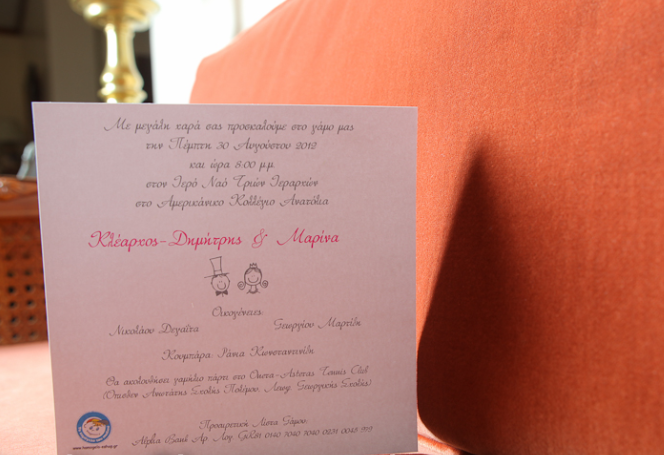 Με μεγάλη χαρά σας προσκαλούμε στο γάμο μας
την Πέμπτη 30 Αυγούστου 2012
και ώρα 8:00 μ.μ.
στον Ιερό Ναό Τριών Ιεραρχών
στο Αμερικάνικο Κολλέγιο Ανατόλια
Κλέαρχος-Δημήτρης & Μαρίνα
Οικογένειες
Νικολάου Γεωργίου
Κουμπάρα Ράνια Κωνσταντινίδη
Θα ακολουθήσει γαμήλιο πάρτι στο Tennis Club
(Όπισθεν Ανωτάτης Σχολής Πολέμου, Λεωφ. Γεωργικής Σχολής)
Προαιρετική Λίστα Γάμου:
Alpha Bank Αρ. Λογ.